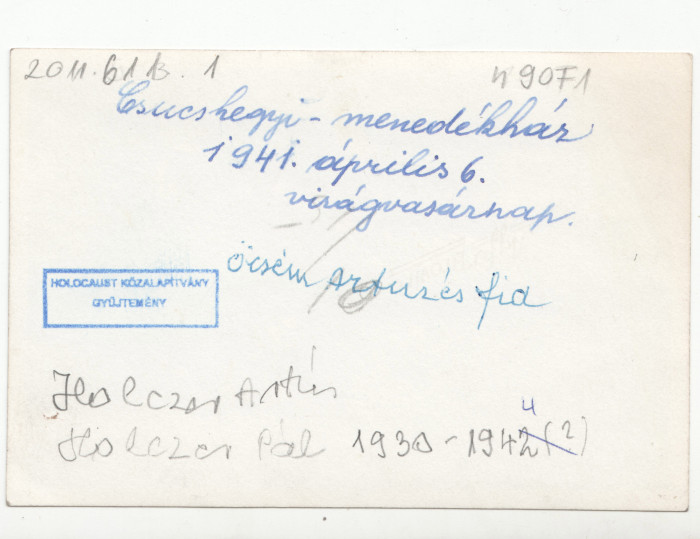 2011.61B.1
4 90F1
Csúcshegyi - menedékház
1941. április 6.
virágvasárnap.
Öcsém Artur és fia
HOLOCAUST KÖZALAPÍTVÁNY
GYŰJTEMÉNY
Holczer Artúr
Holczer Pál 1930 - 1942 (2)
4